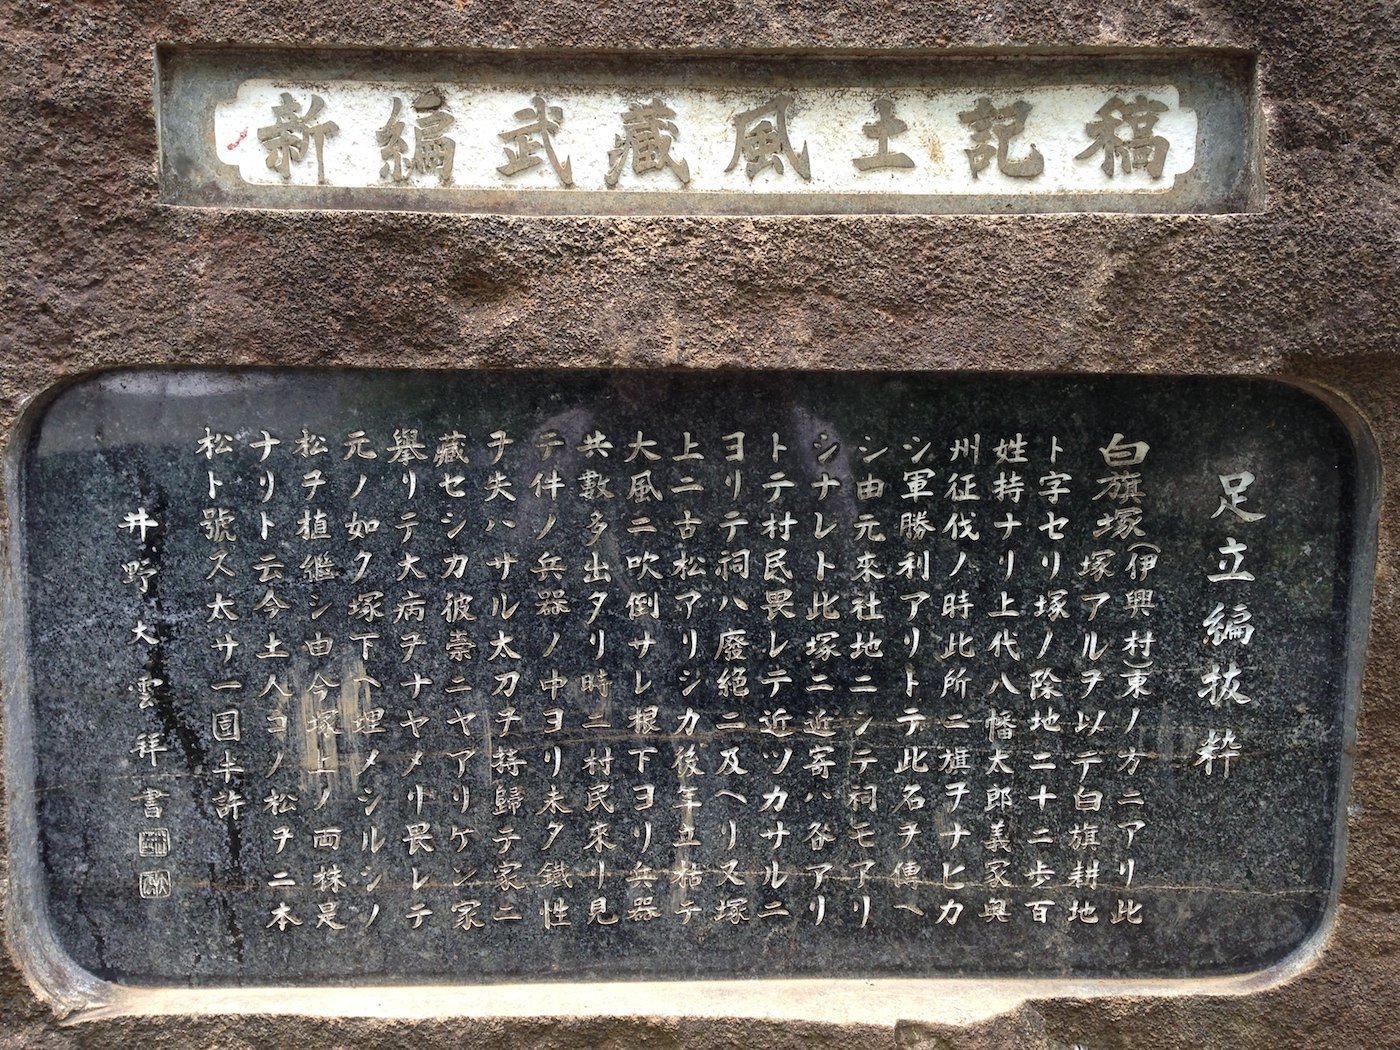 新編武蔵風土記稿
足立編抜粋
白旗塚(伊興村)東ノ方ニアリ此
塚アルヲ以テ白旗耕地
ト字セリ塚ノ除地ニ十二歩百
姓持ナリ上代八幡太郎義家奥
州征伐ノ時此所ニ旗ヲナヒカ
シ軍勝利アリトテ此名ヲ傳ヘ
シ由元來社地ニシテ祠モアリ
シナレト此塚ニ近寄ハ咎アリ
トテ村民畏レテ近ツカサルニ
ヨリテ祠ハ廢絶ニ及ヘリス塚
上ニ古松アリシカ後年立枯テ
大風ニ吹倒サレ根下ヨリ兵器
共數多出タリ時ニ村民來リ見
テ件ノ兵器ノ中ヨリ未タ鐵性
ヲ失ハサル太刀ヲ持歸テ家ニ
藏セシカ彼祟ニヤアリケン家
擧リテ大病ヲナヤメリ畏レテ
元ノ如ク塚下ヘ埋メシルシノ
松ヲ植繼シ由今塚上ノ両株是
ナリト云今土人コノ松ヲ二本
松ト號ス太サ一囲半許
井野大雲祥書